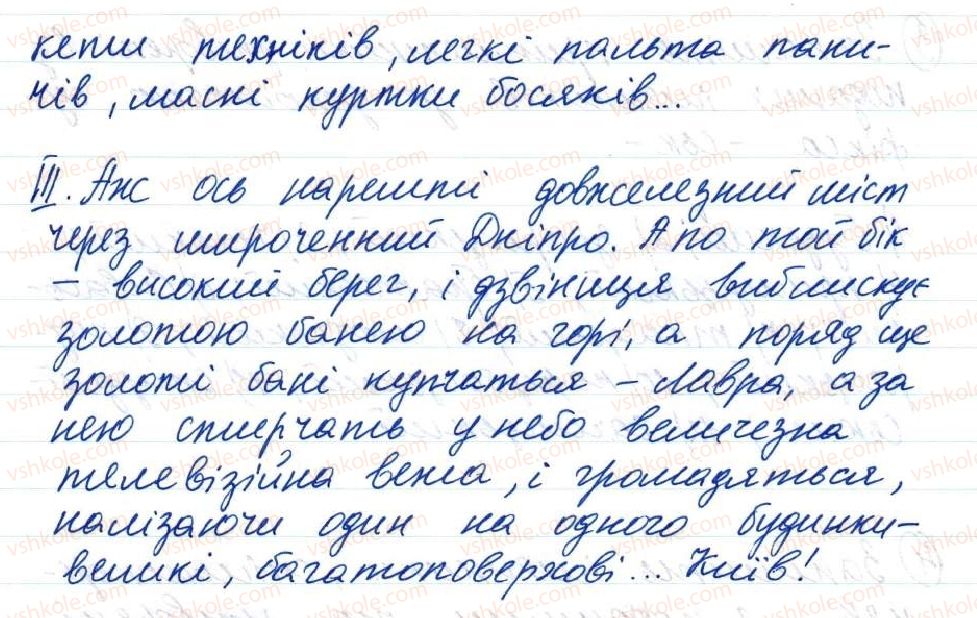 кепи техніків, легкі пальта пани-
чів, масні куртки босяків...
III. Аж ось нарешті довжелезний міст
через широченний Дніпро. А по той бік
– високий берег, і дзвіниця виблискує
золотою банею на горі, а поряд ще
золоті бані купчаться – Лавра, а за
нею стирчать у небо величезна
телевізійна вежа, і громадяться,
налізаючи один на одного будинки –
великі, багатоповерхові... Київ!